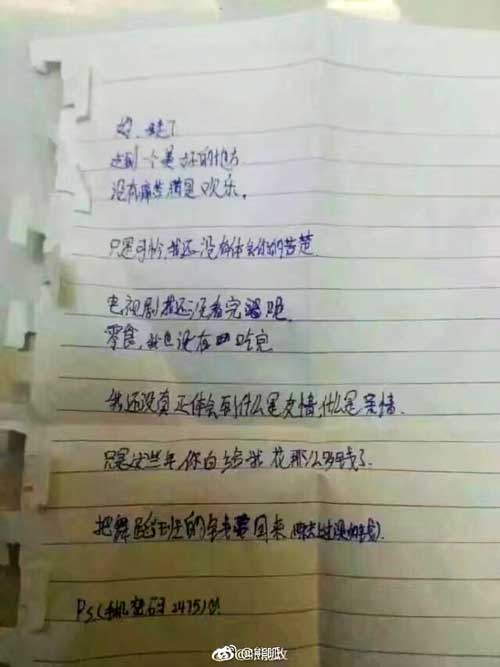 妈，我走了
去到一个美好的地方
没有痛苦满是欢乐。
只是可怜，我还没有体会你的苦楚
电视剧我还没看完呢
零食，我也没有吃完
我还没真正体会到什么是友情，什么是亲情.
只是这些年，你白给我花那么多钱了.
把舞蹈班的钱要回来（除去上过课的钱）.
Ps（手机密码2475）